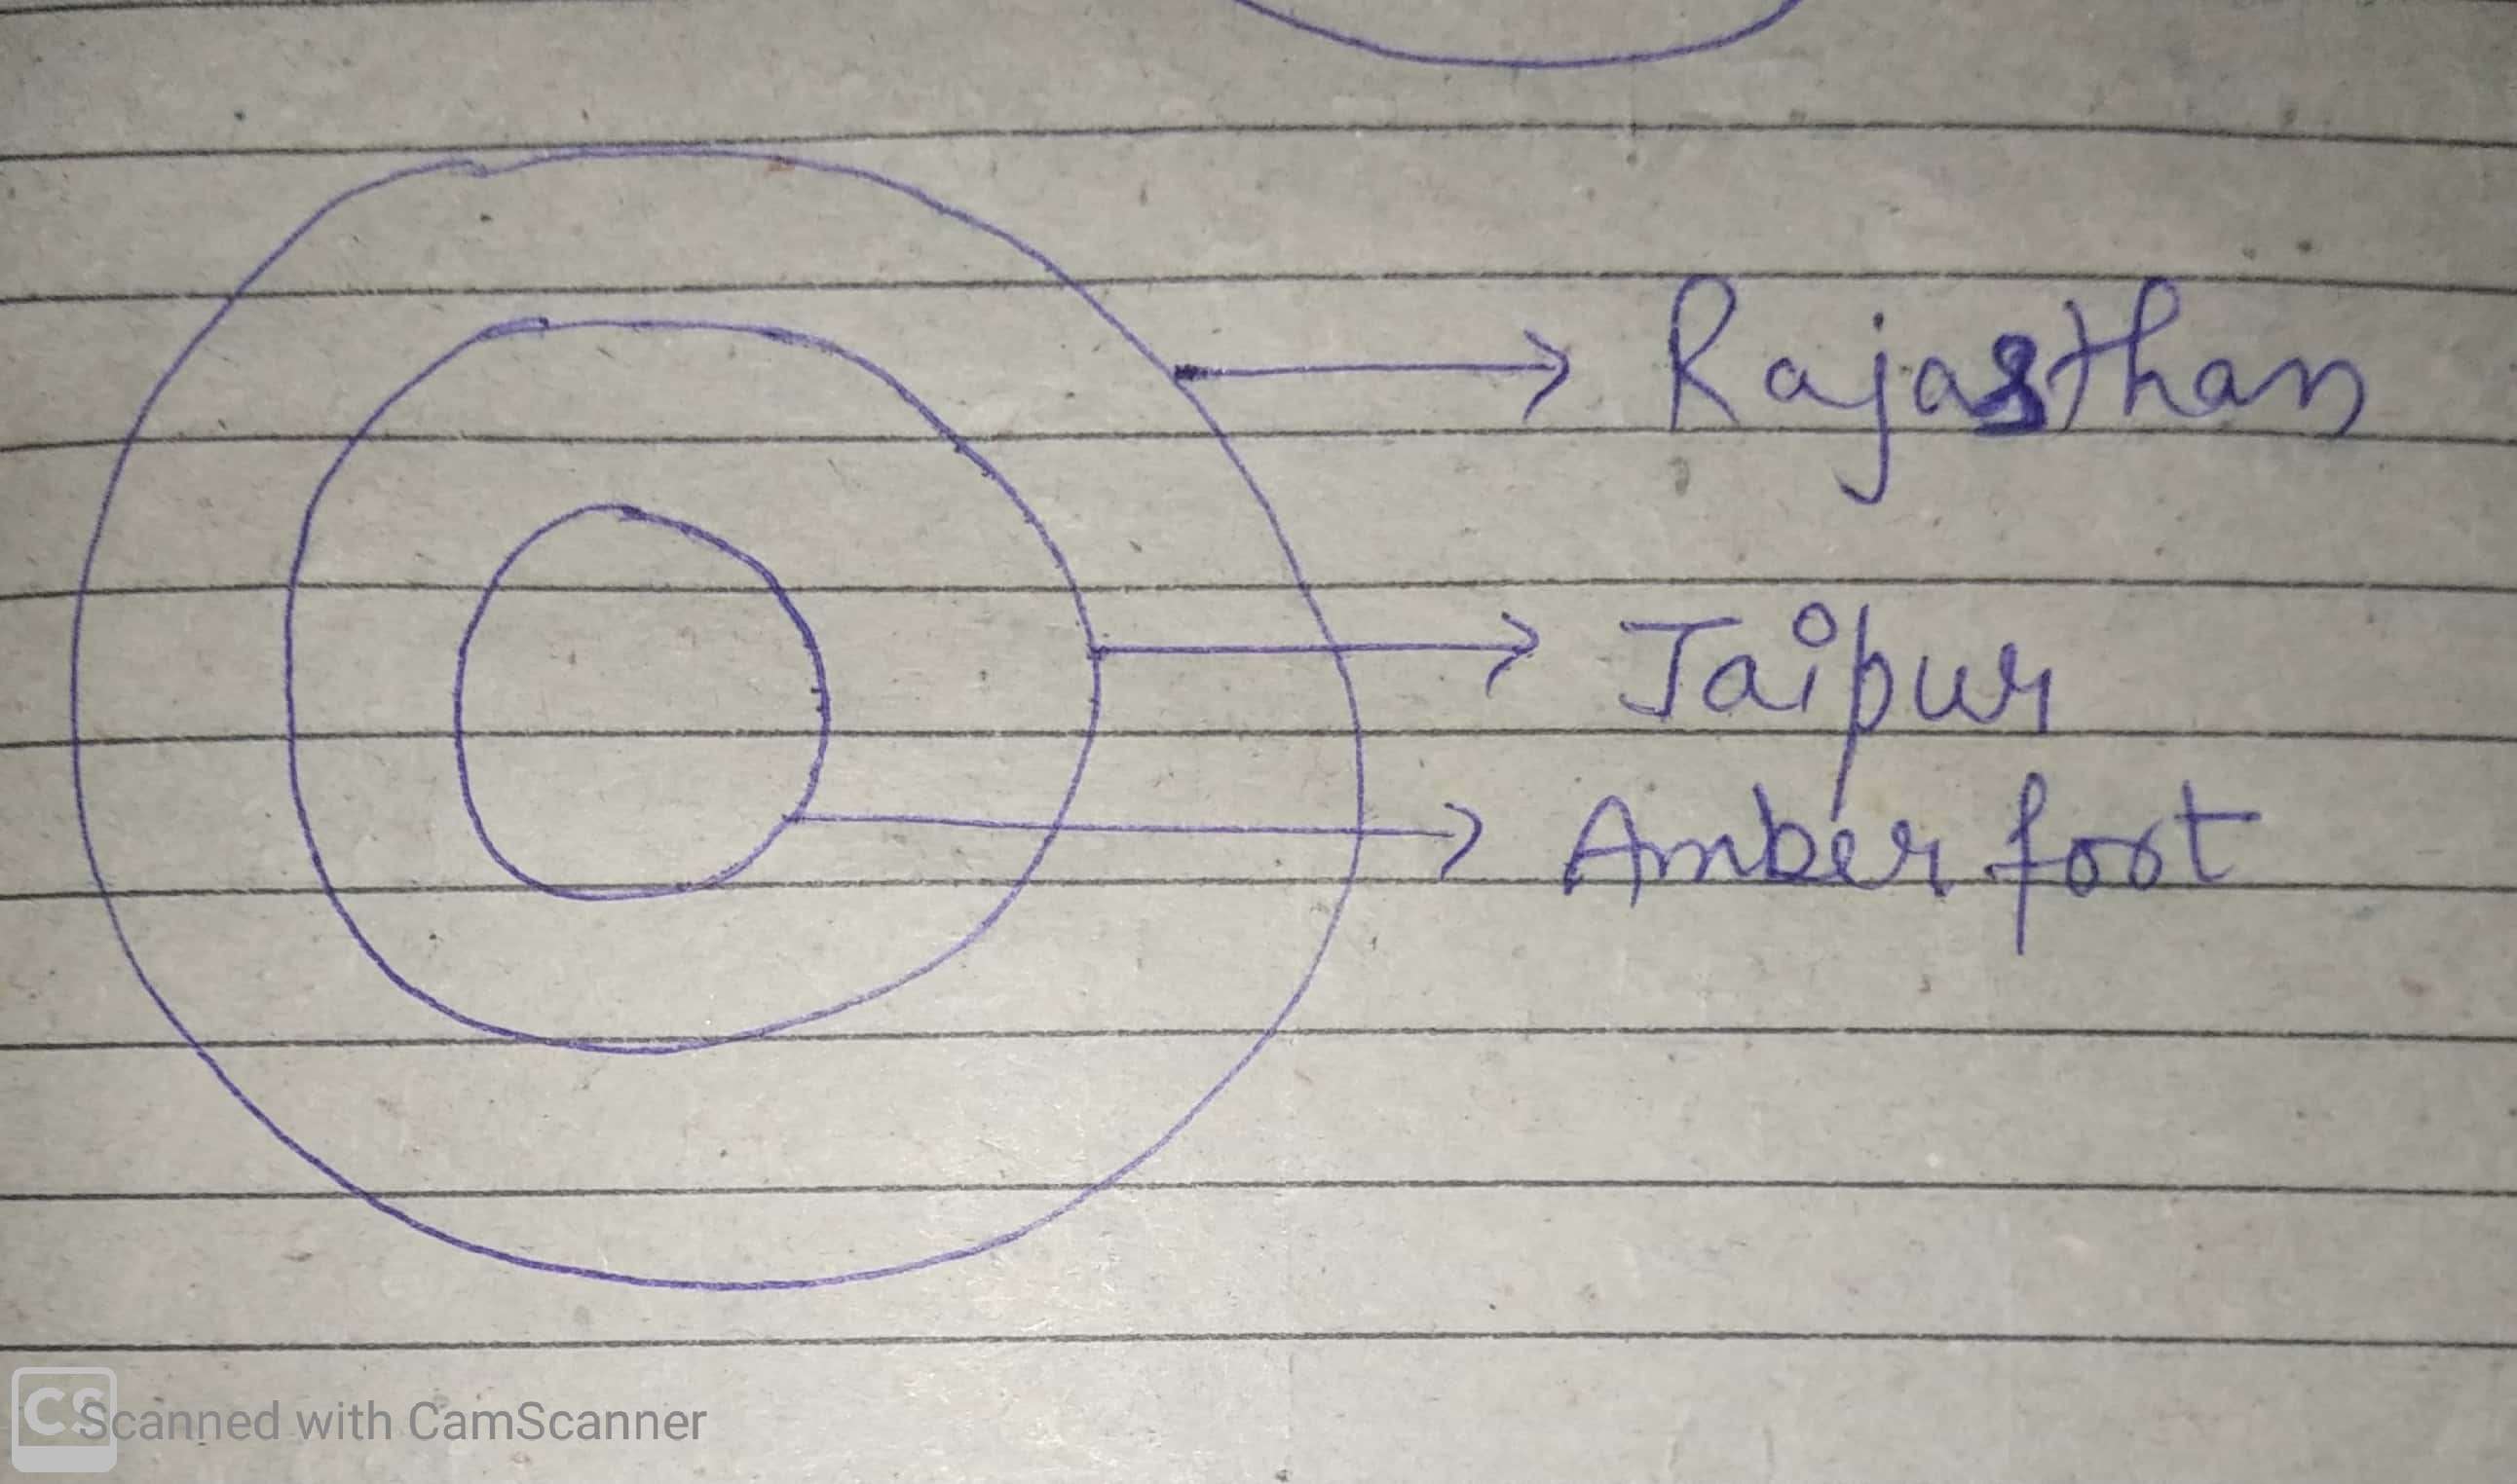 Rajasthan
Jaipur
Amber fort
CS Scanned with CamScanner